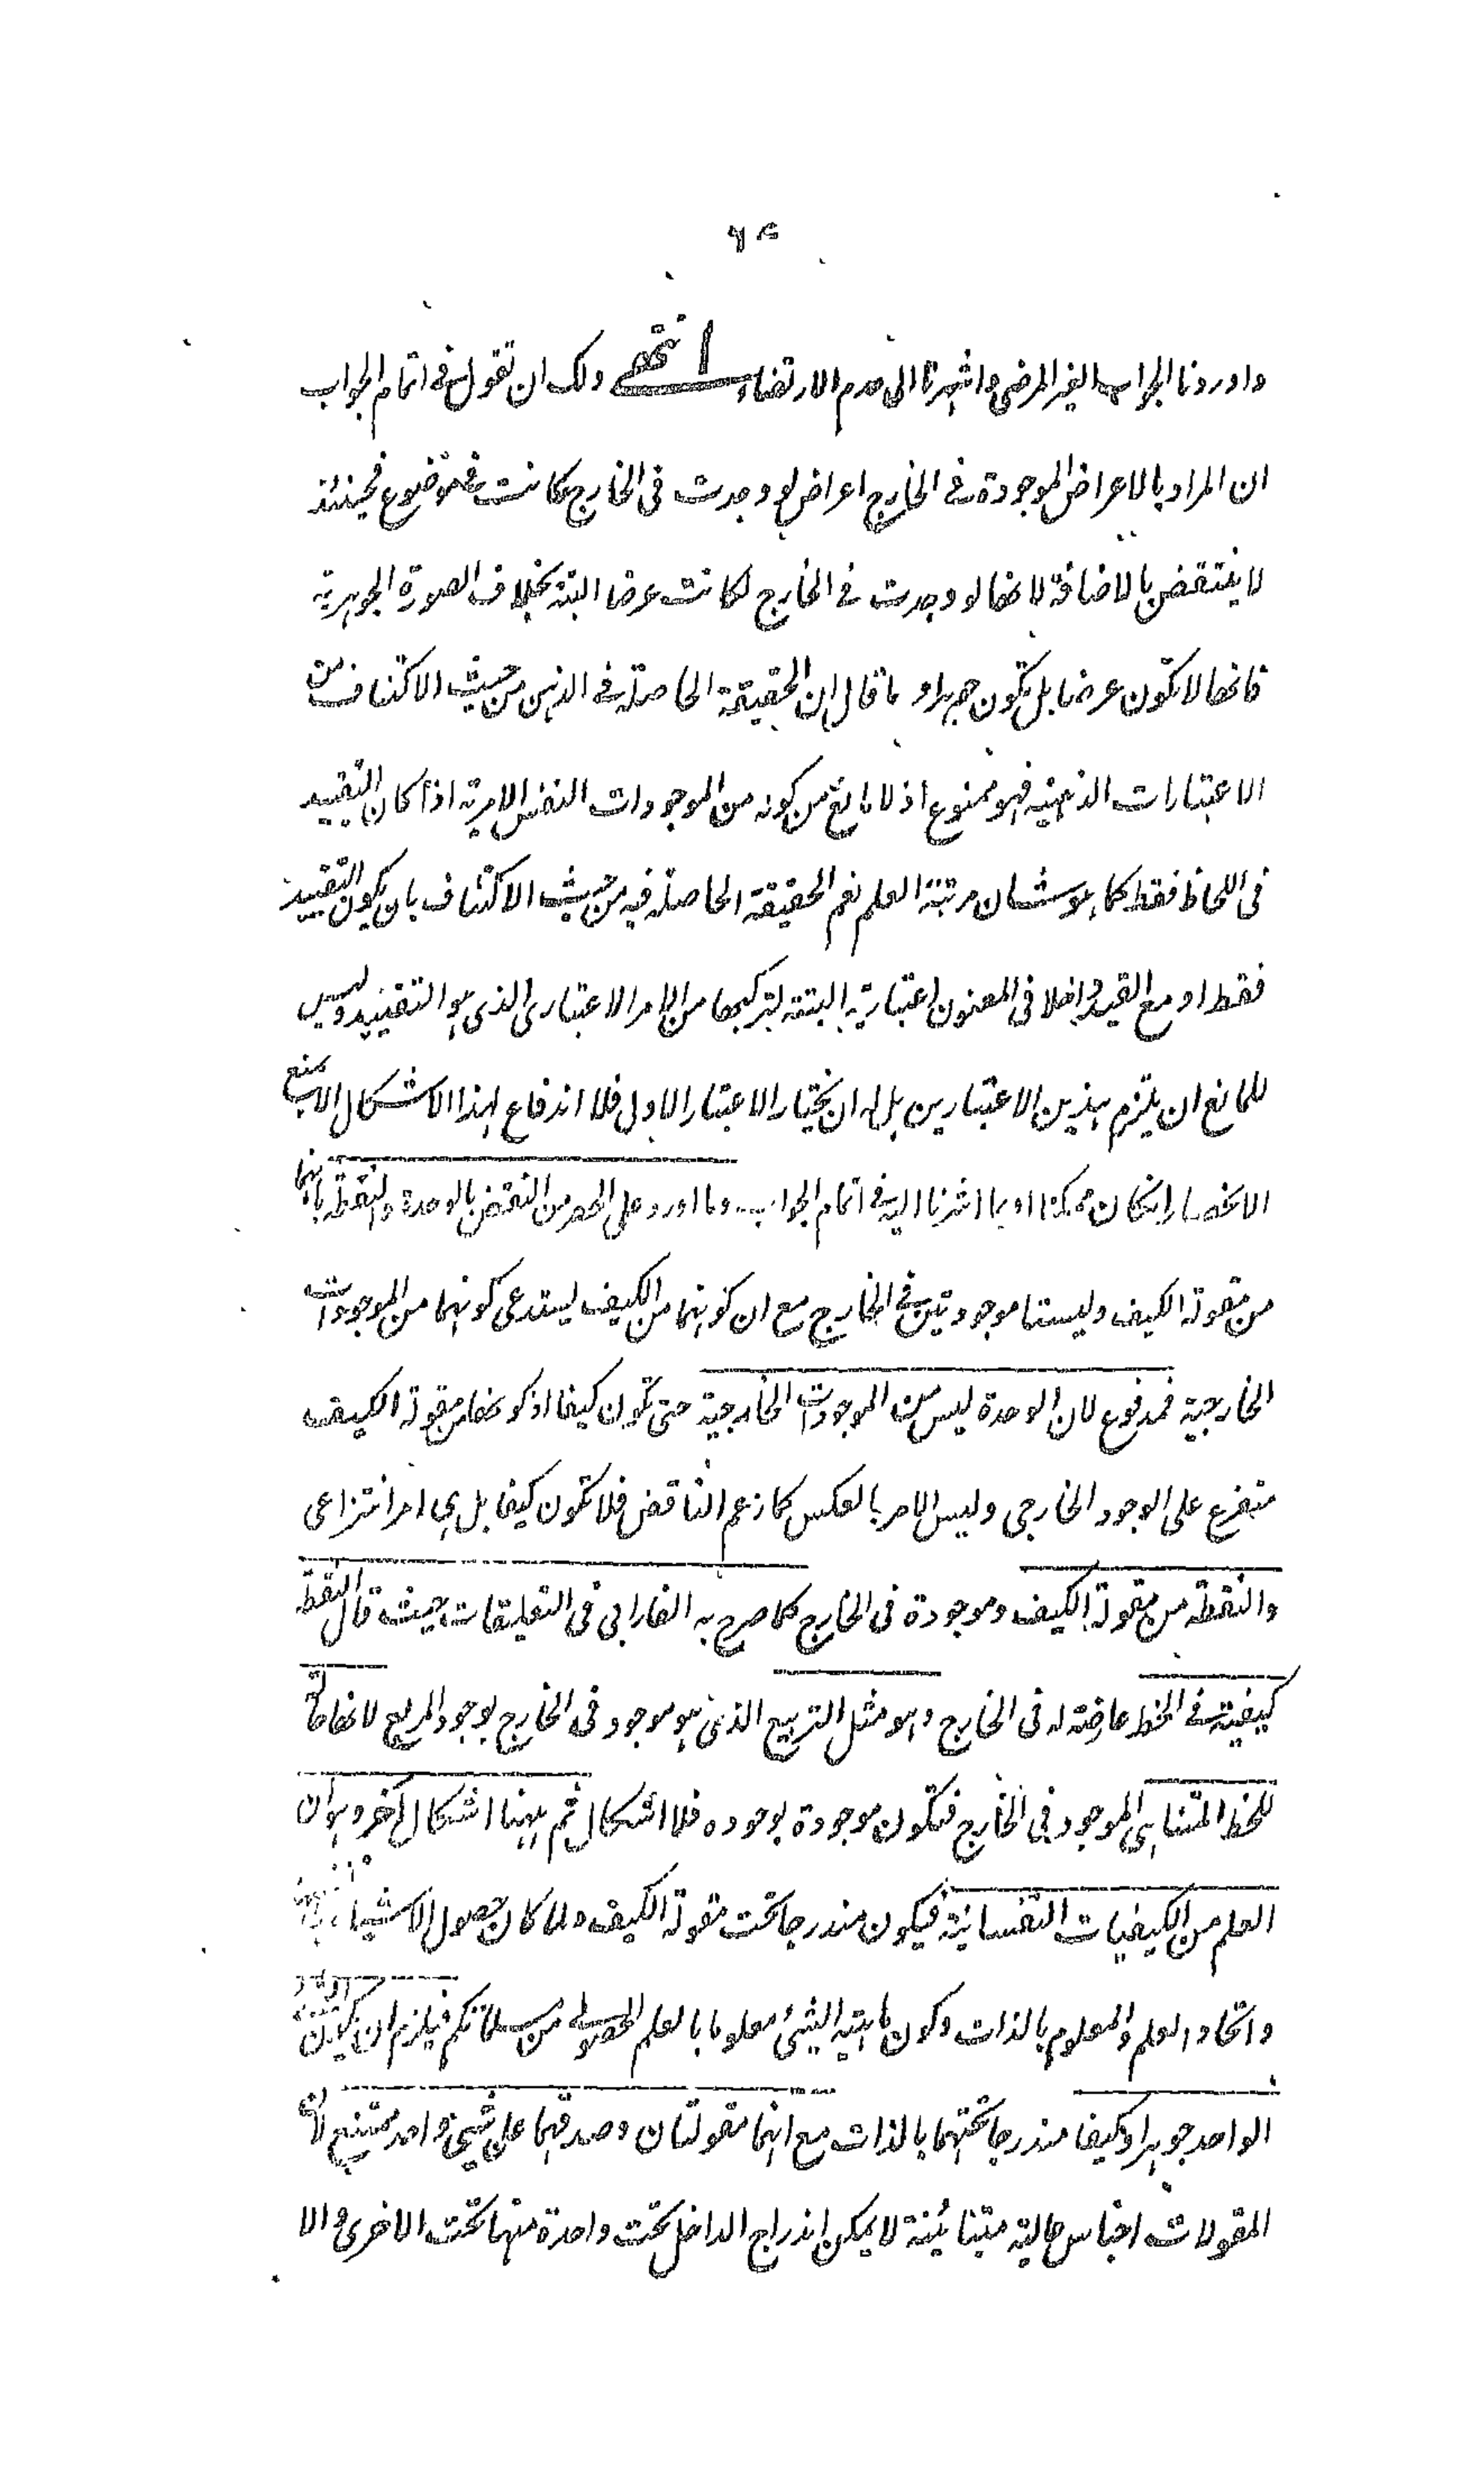 ٦٤
واوردنا الجواب الغير المرضى واشرنا الى عدم الارتضاء انتهى ولك ان تقول فى اتمام الجواب
ان المراد بالاعراض الموجودة فى الخارج اعراض لو وجدت فى الخارج لكانت فى موضوع فحينئذ
لا ينتقض بالاضافة لانها لو وجدت فى الخارج لكانت عرضا البتة بخلاف الصورة الجوهرية
فانها لا تكون عرضا بل تكون جوهرا و ما قال ان الحقيقة الحاصلة فى الذهن من حيث الاكتناف من
الاعتبارات الذهنية فهو ممنوع اذ لا مانع من كونه من الموجودات النفس الامرية اذا كان التقييد
فى اللحاظ فقط كما هو شان مرتبة العلم نعم الحقيقة الحاصلة فيه من حيث الاكتناف بان يكون التقييد
فقط او مع القيد داخلا فى المعنون اعتبارية البتة لتركبها من الامر الاعتبارى الذى هو التقييد وليس
للمانع ان يلتزم بهذين الاعتبارين بل له ان يختار الاعتبار الاول فلا اندفاع لهذا الاشكال الا بمنع
الانحصار ان كان ممكنا او بما اشرنا اليه فى اتمام الجواب وما اورد على الحصر من النقض بالوحدة والنقطة بانهما
من مقولة الكيف وليستا موجودتين فى الخارج مع ان كونهما من الكيف يستدعى كونهما من الموجودات
الخارجية فمدفوع لان الوحدة ليس من الموجودات الخارجية حتى تكون كيفا اذ كونها من مقولة الكيف
متفرع على الوجود الخارجى وليس الامر بالعكس كما زعم الناقض فلا تكون كيفا بل هى امر انتزاعى
والنقطة من مقولة الكيف وموجودة فى الخارج كما صرح به الفارابى فى التعليقات حيث قال النقطة
كيفية فى الخط عارضة له فى الخارج وهو مثل التربيع الذى هو موجود فى الخارج بوجود المربع لانها
للخط المتناهى الموجود فى الخارج فتكون موجودة بوجوده فلا اشكال ثم ههنا اشكال آخر وهو ان
العلم من الكيفيات النفسانية فيكون مندرجا تحت مقولة الكيف ولما كان حصول الاشياء
واتحاد العلم والمعلوم بالذات وكون ماهية الشئ معلوما بالعلم الحصولى من مسلماتكم فيلزم ان يكون
الواحد جوهرا وكيفا مندرجا تحتهما بالذات مع انهما مقولتان وصدقهما على شيئ واحد ممتنع لان
المقولات اجناس عالية متباينة لا يمكن اندراج الداخل تحت واحدة منها تحت الاخرى والا